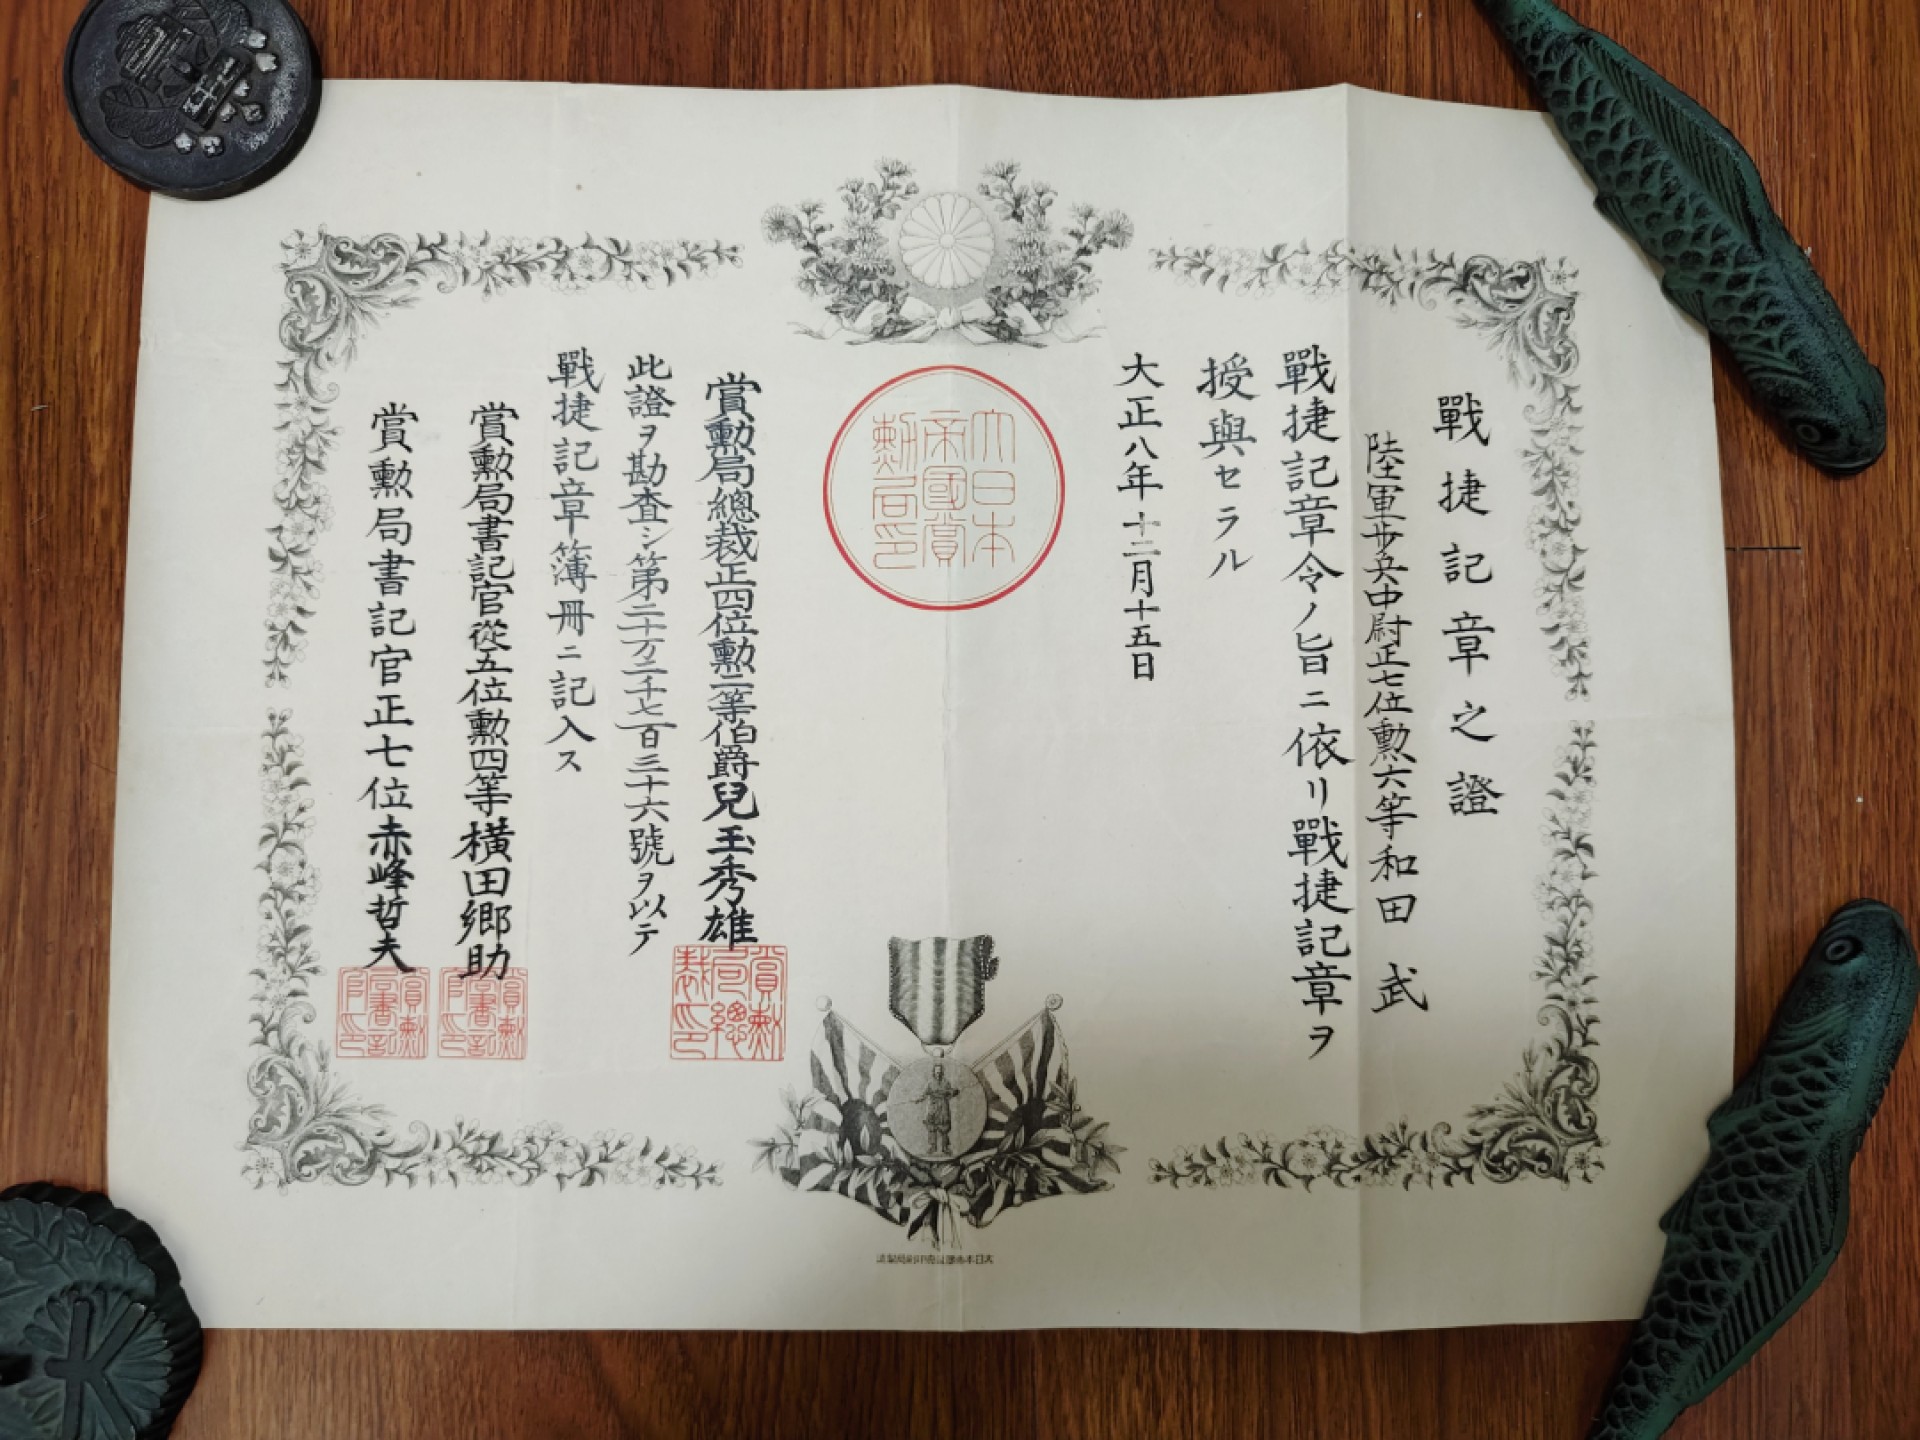 戰捷記章之證
陸軍步兵中尉正七位勲六等和田武
戰捷記章令ノ旨ニ依リ戰捷記章ヲ
授與セラル
大正八年十二月十五日
大日本
帝國賞
勲局印
賞勲局總裁正四位勲二等伯爵兒玉秀雄
賞勲
局總
裁印
此證ヲ勘査シ第二十万二千七百三十六號ヲ以テ
戰捷記章簿冊ニ記入ス
賞勲局書記官從五位勲四等横田郷助
賞勲
局書記
官印
賞勲局書記官正七位赤峰哲夫
賞勲
局書記
官印